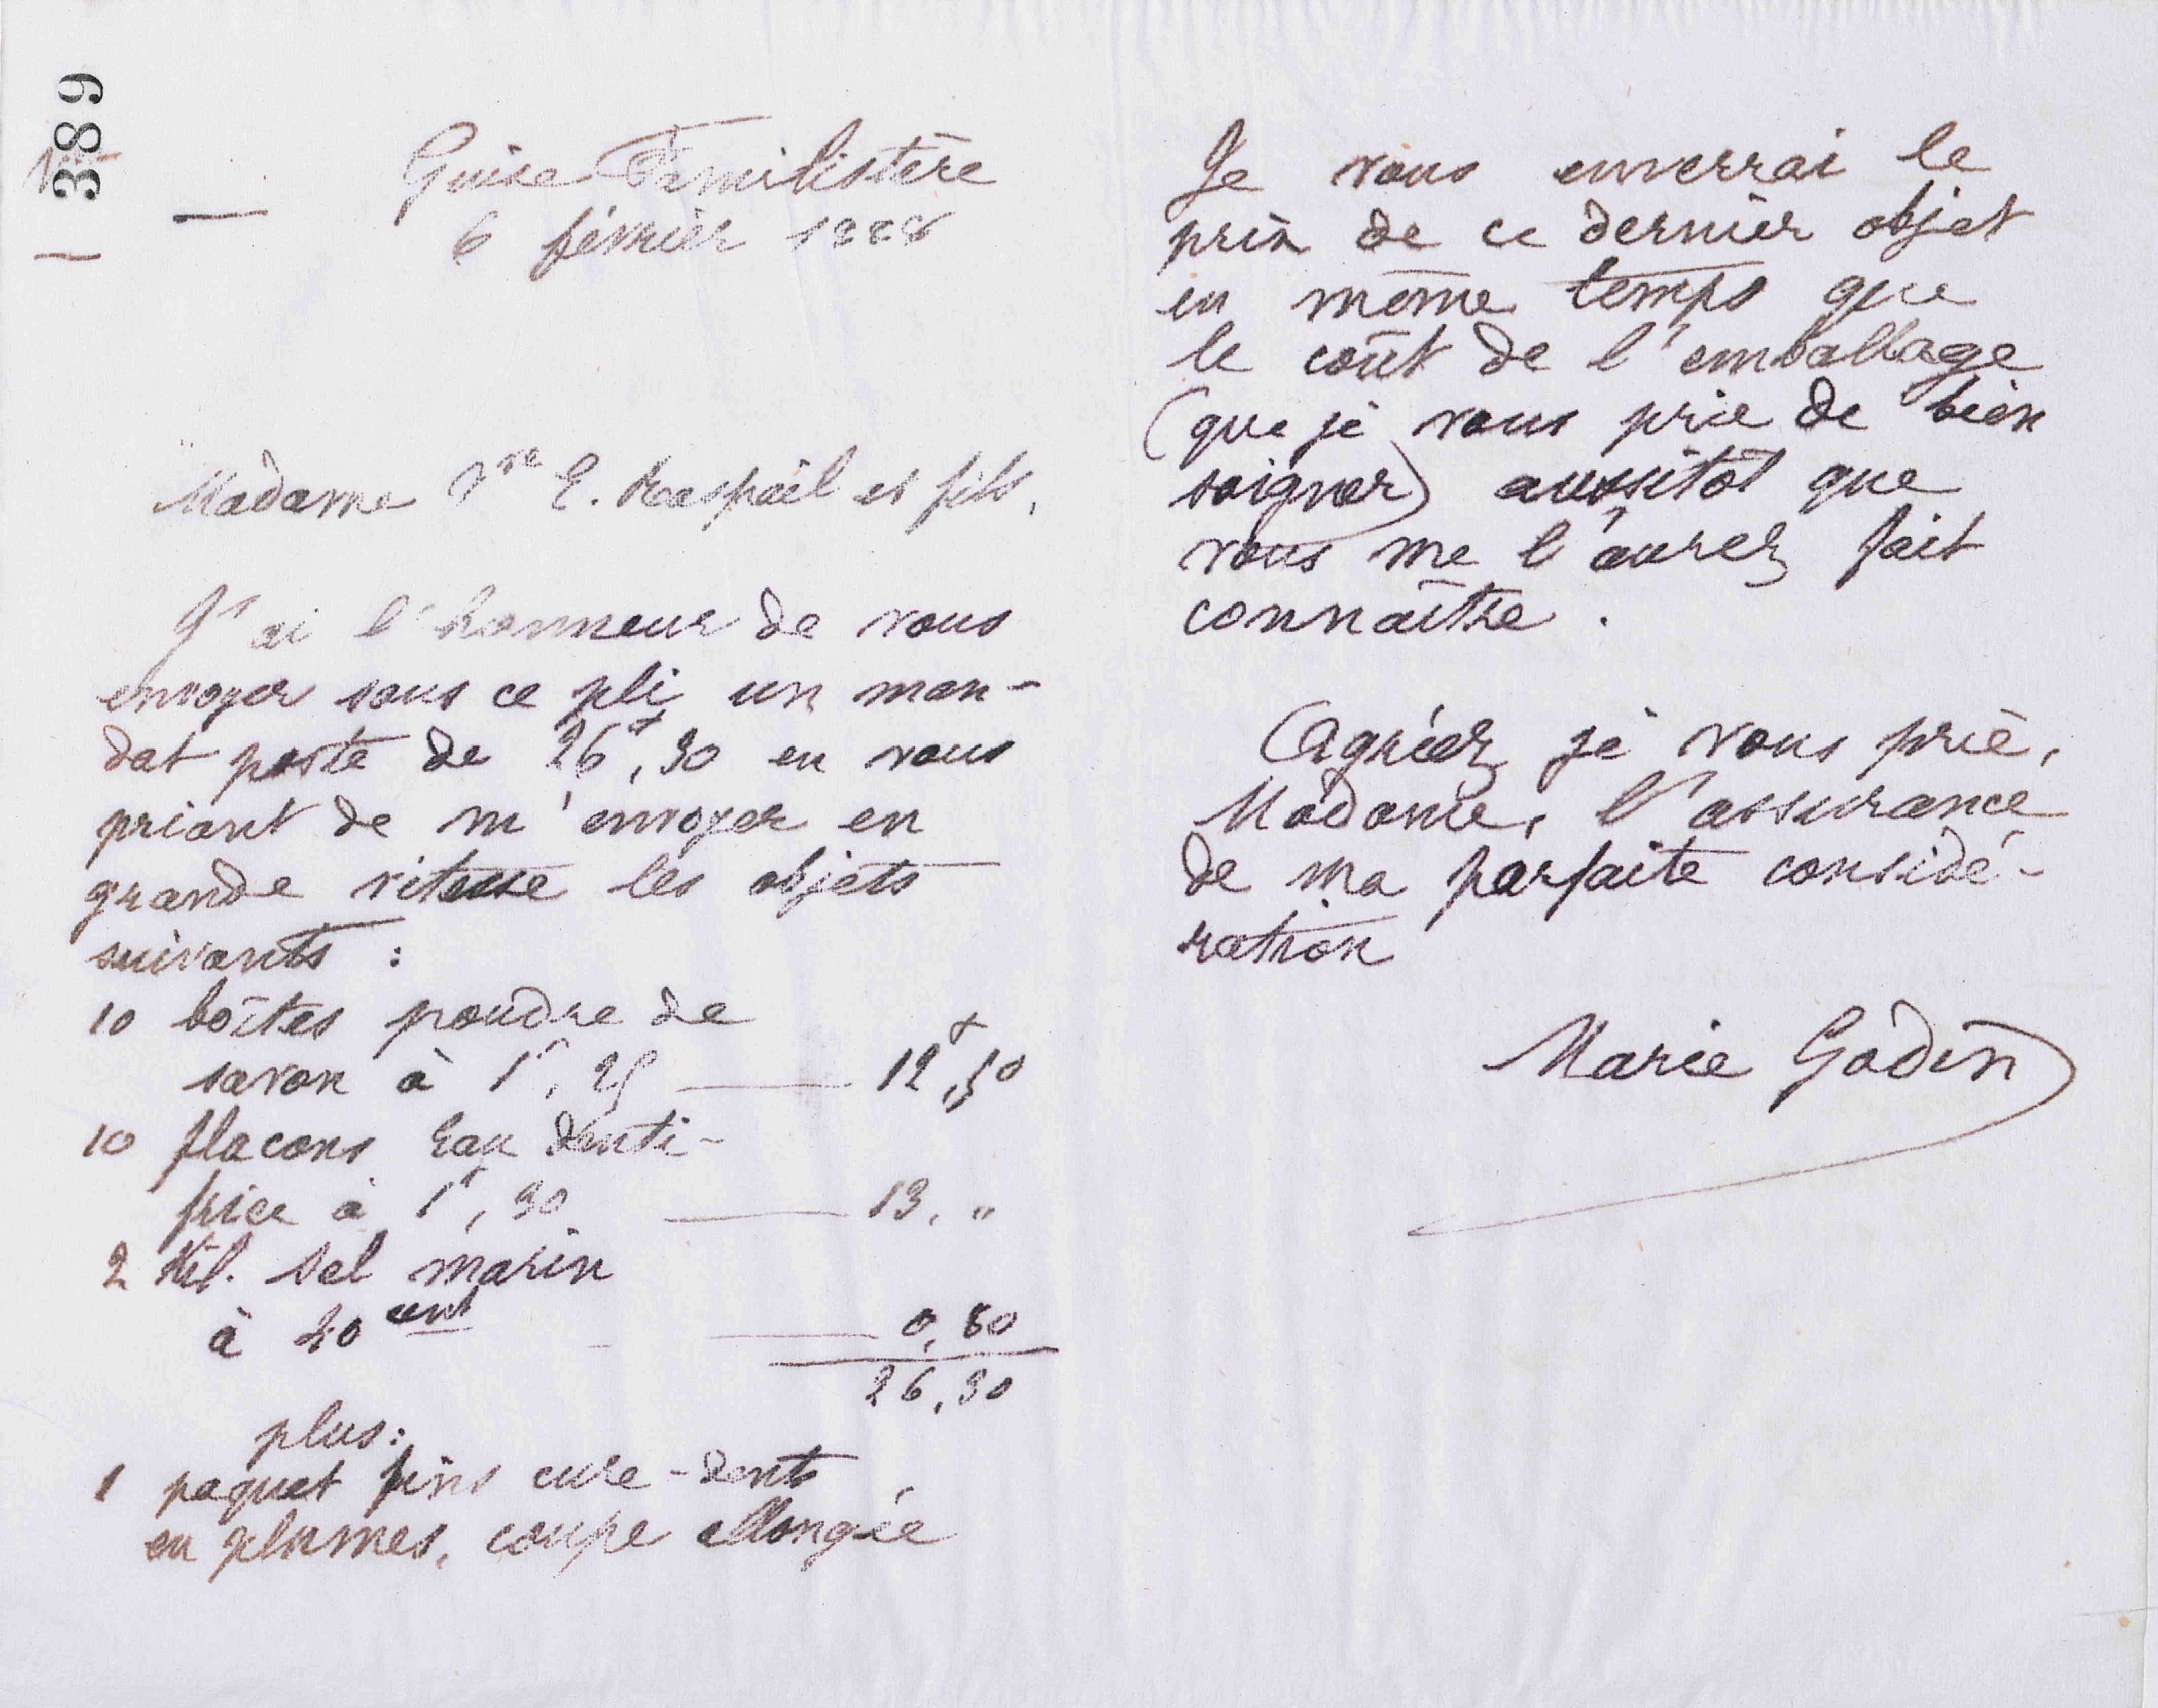 389
Guise Familistère
6 février 1888
Madame Vve E. Raspail et fils,
J'ai l'honneur de vous
envoyer sous ce pli un man-
dat poste de 26f,30 en vous
priant de m'envoyer en
grande vitesse les objets
suivants :
10 boîtes poudre de
savon à 1f,25 — 12f,50
10 flacons Eau denti-
frice à 1f,30 — 13, "
2 Kil. Sel marin
à 40 cent — 0,80
26,30
plus :
1 paquet fins cure-dents
en plumes, coupe allongée
Je vous enverrai le
prix de ce dernier objet
en même temps que
le coût de l'emballage
(que je vous prie de bien
soigner) aussitôt que
vous me l'aurez fait
connaître.
Agréez, je vous prie,
Madame, l'assurance
de ma parfaite considé-
ration
Marie Godin